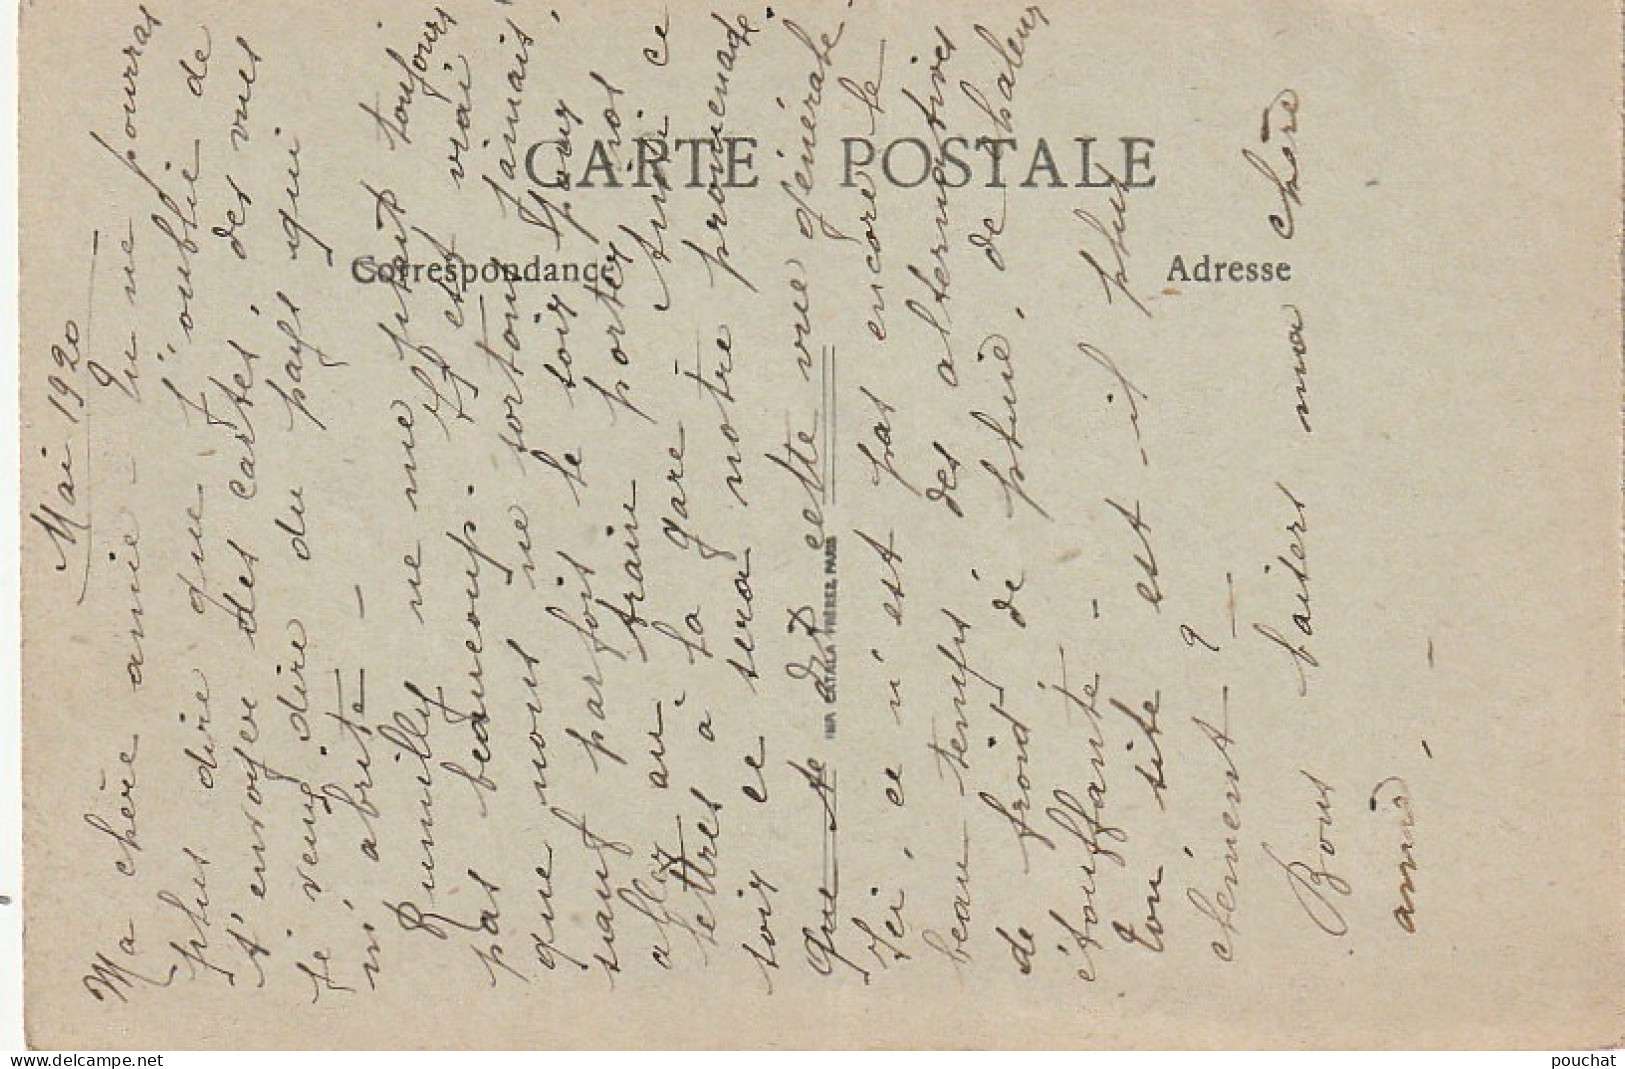 Mai 1920
Ma chère amie - Tu ne pourras
plus dire que j'oublie de
t'envoyer des cartes, des vues
je veux dire du pays qui
m'abrite -
Rumilly ne me plait toujours
pas beaucoup. Il est vrai
que nous ne sortons jamais,
sauf parfois le soir pour
aller au train porter nos
lettres à la gare. Aussi ce
soir ce sera notre promenade
que te dit cette vue générale -
Ici, ce n'est pas encore le
beau temps des alternatives
de froid de pluie, de chaleur
étouffante -
Ton site est-il plus
clément ?
Bons baisers ma chère
amie -
CARTE POSTALE
Correspondance
Adresse
IMP. CATALA FRÈRES PARIS
pouchat
www.delcampe.net